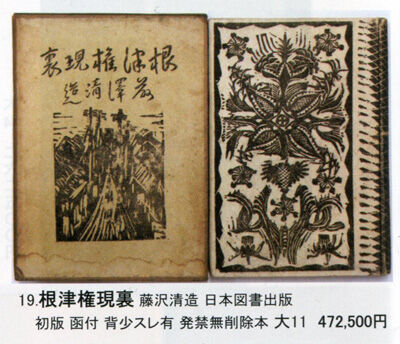 根津権現裏
藤澤清造
19.根津権現裏 藤沢清造 日本図書出版
初版 函付 背少スレ有 発禁無削除本 大11 472,500円